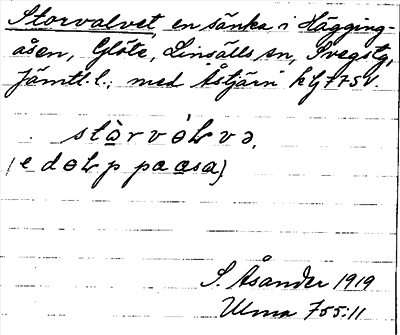 Storvalvet, en sänka i Hägging-
åsen, Glöte, Linsälls sn, Svegs tg,
Jämtl. l.; med Åstjärn k G 775 V.
stɑ̀rvɵ̀Łvə,
(e dɵŁp pɑɑsɑ)
S. Åsander 1919
Ulma 755:11